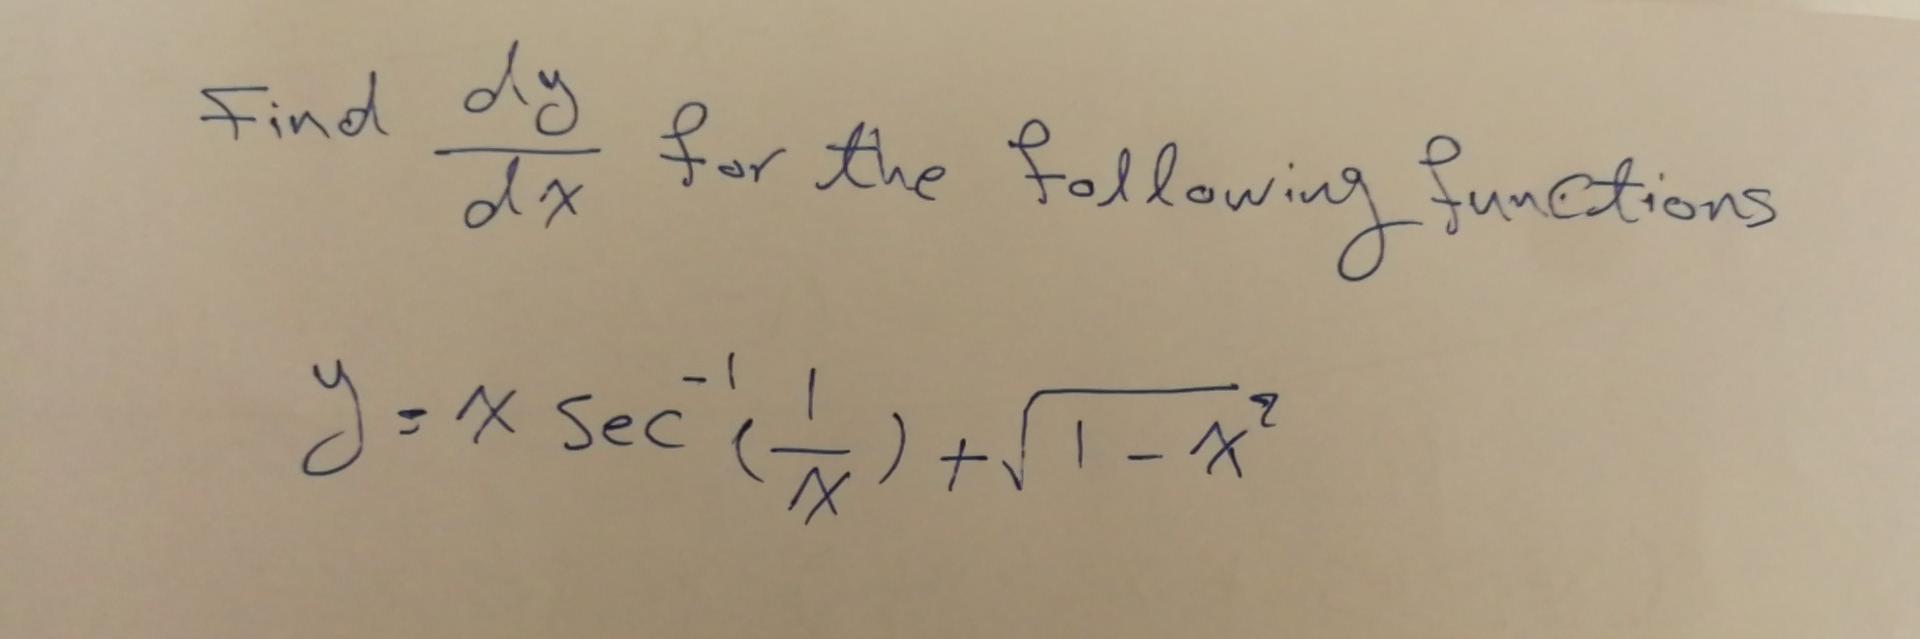 Find dy/dx for the following functions
y = x sec⁻¹(1/x) + √(1 - x²)